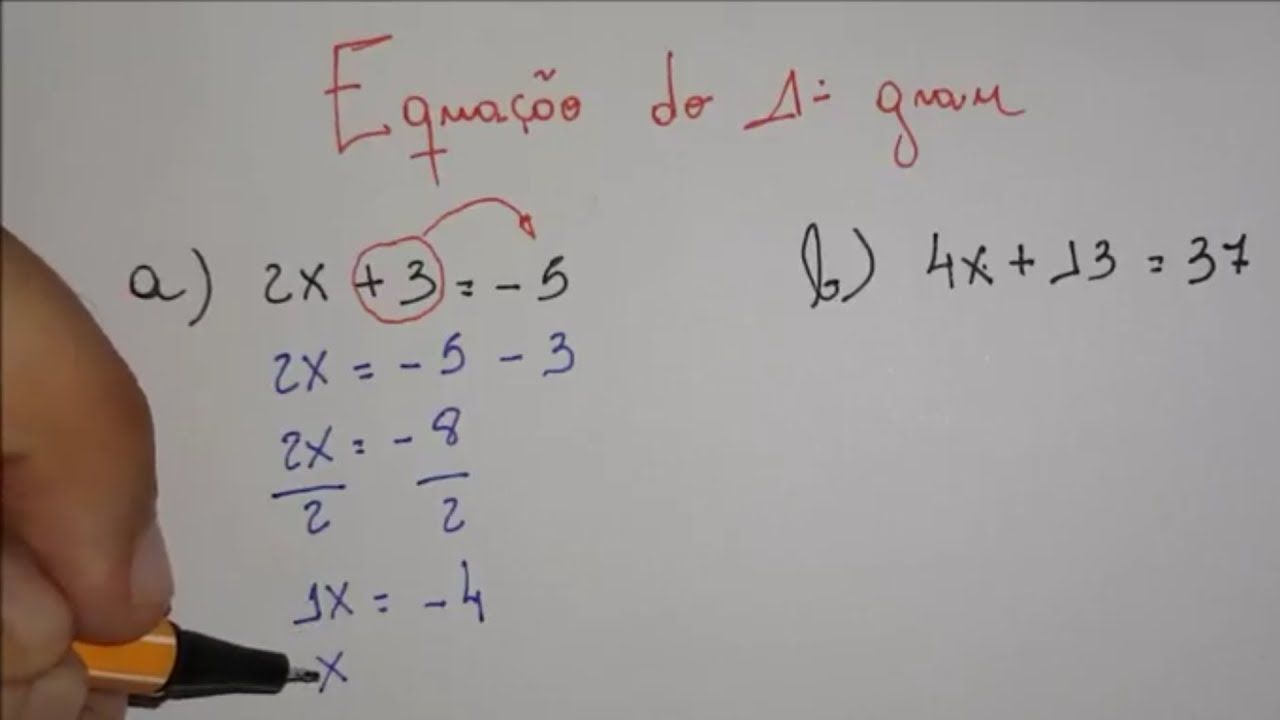 Equação do 1º grau
a) 2x + 3 = - 5
2x = - 5 - 3
2x = - 8
2 2
1x = - 4
x
b) 4x + 13 = 37